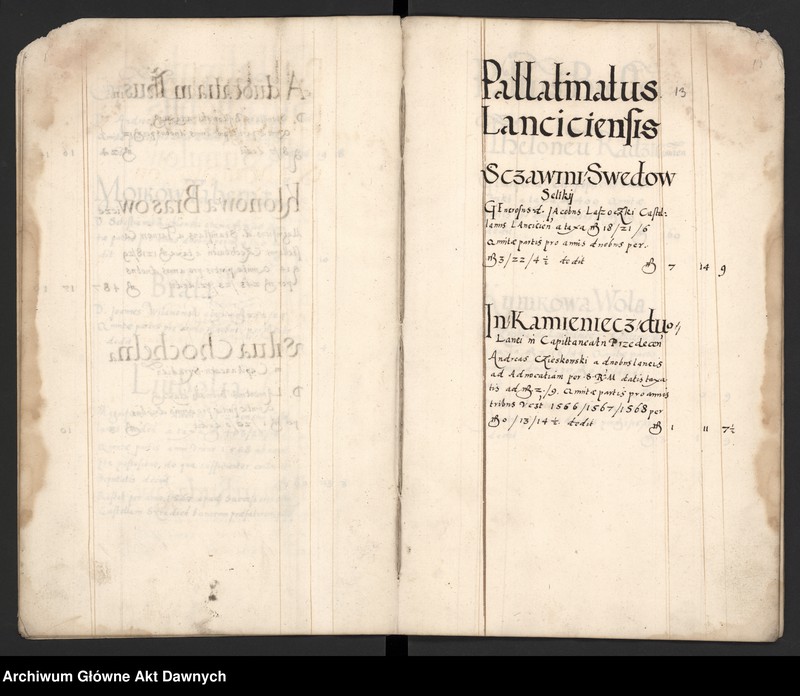 Pallatinatus
13
Lanciciensis
Sczawini Swedow
Selikij
Generosus d. Jacobus Laszoczki Castel-
lanus Lancicien a taxa 18/21/6
quintae partis pro annis duobus per
3/22/4½ dedit 7 14 9
In Kamieniecz duo
Lanci in Capitaneatu Przedecen
Andreas Czieskowski a duobus laneis
ad Advocatiam per S. R. M. datis taxa
tis ad 2/9. quintae partis pro annis
tribus 1566/1567/1568 per
0/13/14½ dedit 1 11 7½
Archiwum Główne Akt Dawnych